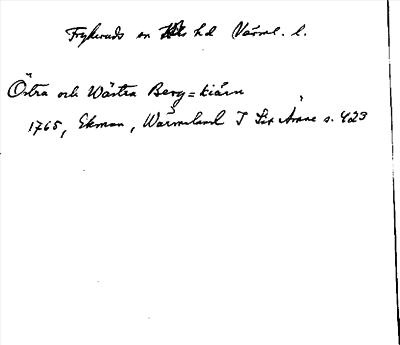 Frykeruds sn Kils hd Värml. l.
Östra och Wästra Berg=kiärn
1765, Ekman, Wärmeland I s. 423